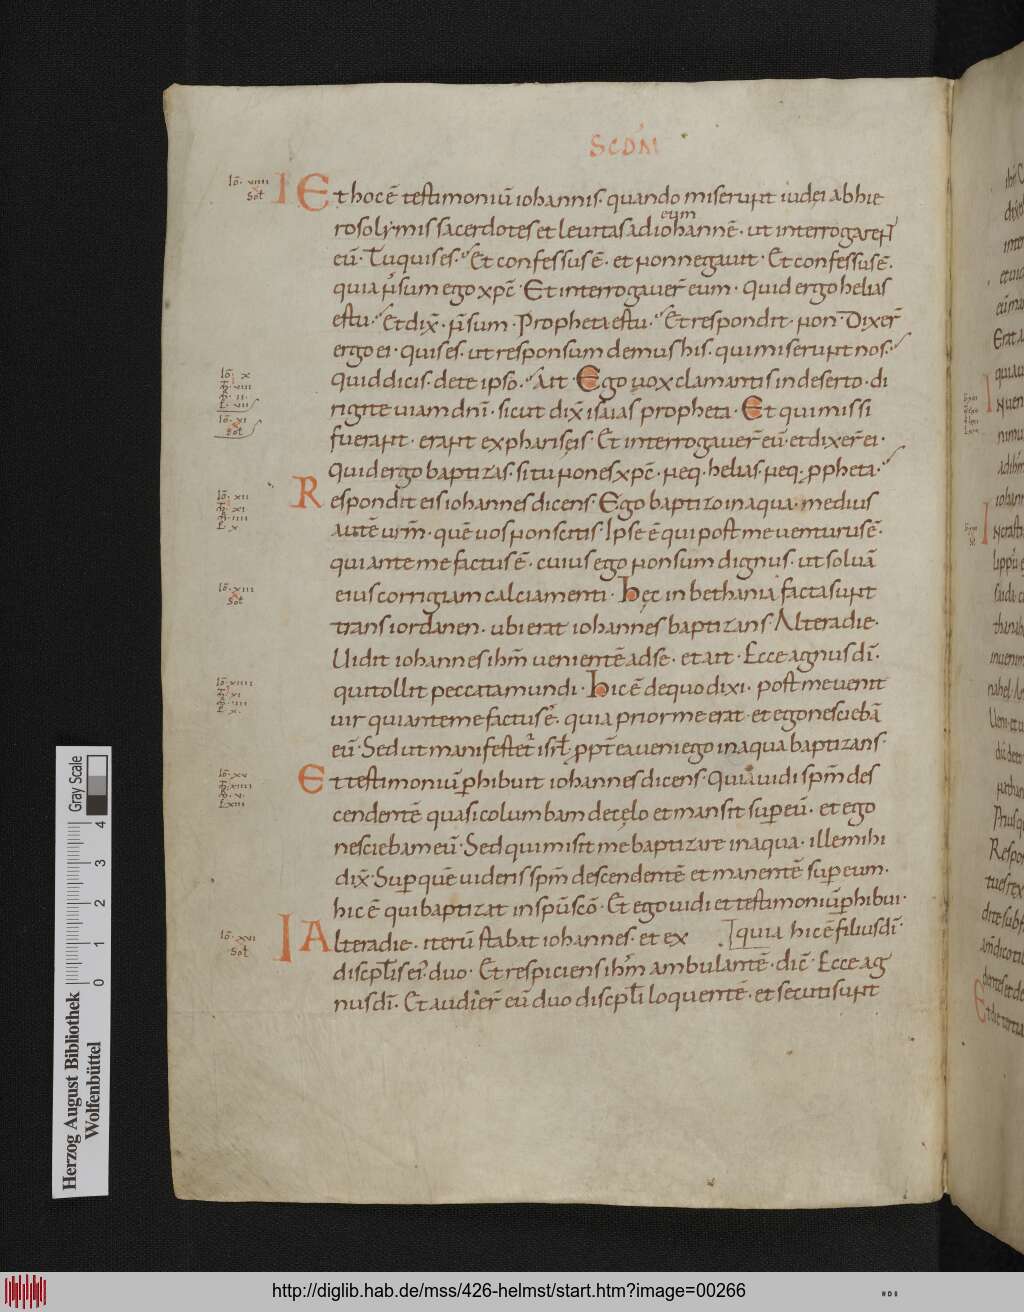 SCDM
Iō· XVIIII
Sol̄
I Et hoc ē testimoniū iohannis· quando miserunt iudęi ab hie
eum
rosolymis sacerdotes et leuitas ad iohannē· ut interrogarent
eū· Tu quis es· Et confessus ē· et non negauit· Et confessus ē·
quia n̄ sum ego xpc̄· Et interrogauer̄ eum· Quid ergo helias
es tu· Et dix̄· n̄ sum· Propheta es tu· Et respondit· non· Dixer̄
ergo ei· quis es· ut responsum demus his· qui miserunt nos·
Iō· X
quid dicis· de te ipsō· Ait· Ego uox clamantis in deserto· di
rigite uiam dnī· sicut dix̄ isaias propheta· Et qui missi
Iō· XI
Sol̄
fuerant· erant ex phariseis· Et interrogauer̄ eū· et dixer̄ ei·
Quid ergo baptizas· si tu non es xpc̄· neq· helias· neq· ppheta·
Iō· XII
Respondit eis iohannes dicens· Ego baptizo in aqua· medius
autē urm̄· quē uos non scitis· Ipse ē qui post me uenturus ē·
qui ante me factus ē· cuius ego non sum dignus· ut soluā
Iō· XIII
Sol̄
eius corrigiam calciamenti· Hęc in bethania facta sunt
trans iordanen· ubi erat iohannes baptizans· Altera die·
Uidit iohannes ihm̄ uenientē ad se· et ait· Ecce agnus dī·
Iō· XIIII
qui tollit peccata mundi· Hic ē de quo dixi· post me uenit
uir qui ante me factus ē· quia prior me erat· et ego nesciebā
eū· Sed ut manifestet isrł· ppt̄ ea ueni ego in aqua baptizans·
Iō· XV
Et testimoniū phibuit iohannes dicens· Quia uidi spm̄ des
cendentē quasi columbam de cęlo et mansit sup eū· et ego
nesciebam eū· Sed qui misit me baptizare in aqua· ille mihi
dix̄· Sup quē uideris spm̄ descendentē et manentē sup eum·
hic ē qui baptizat in spū scō· Et ego uidi et testimoniū phibui·
quia hic ē filius dī·
Iō· XVI
Sol̄
I Altera die· iterū stabat iohannes· et ex
discplis ei duo· Et respiciens ihm̄ ambulantē· dic̄· Ecce ag
nus dī· Et audier̄ eū duo discpłi loquentē· et secuti sunt
Gray Scale
0 1 2 3 4
Herzog August Bibliothek
Wolfenbüttel
http://diglib.hab.de/mss/426-helmst/start.htm?image=00266